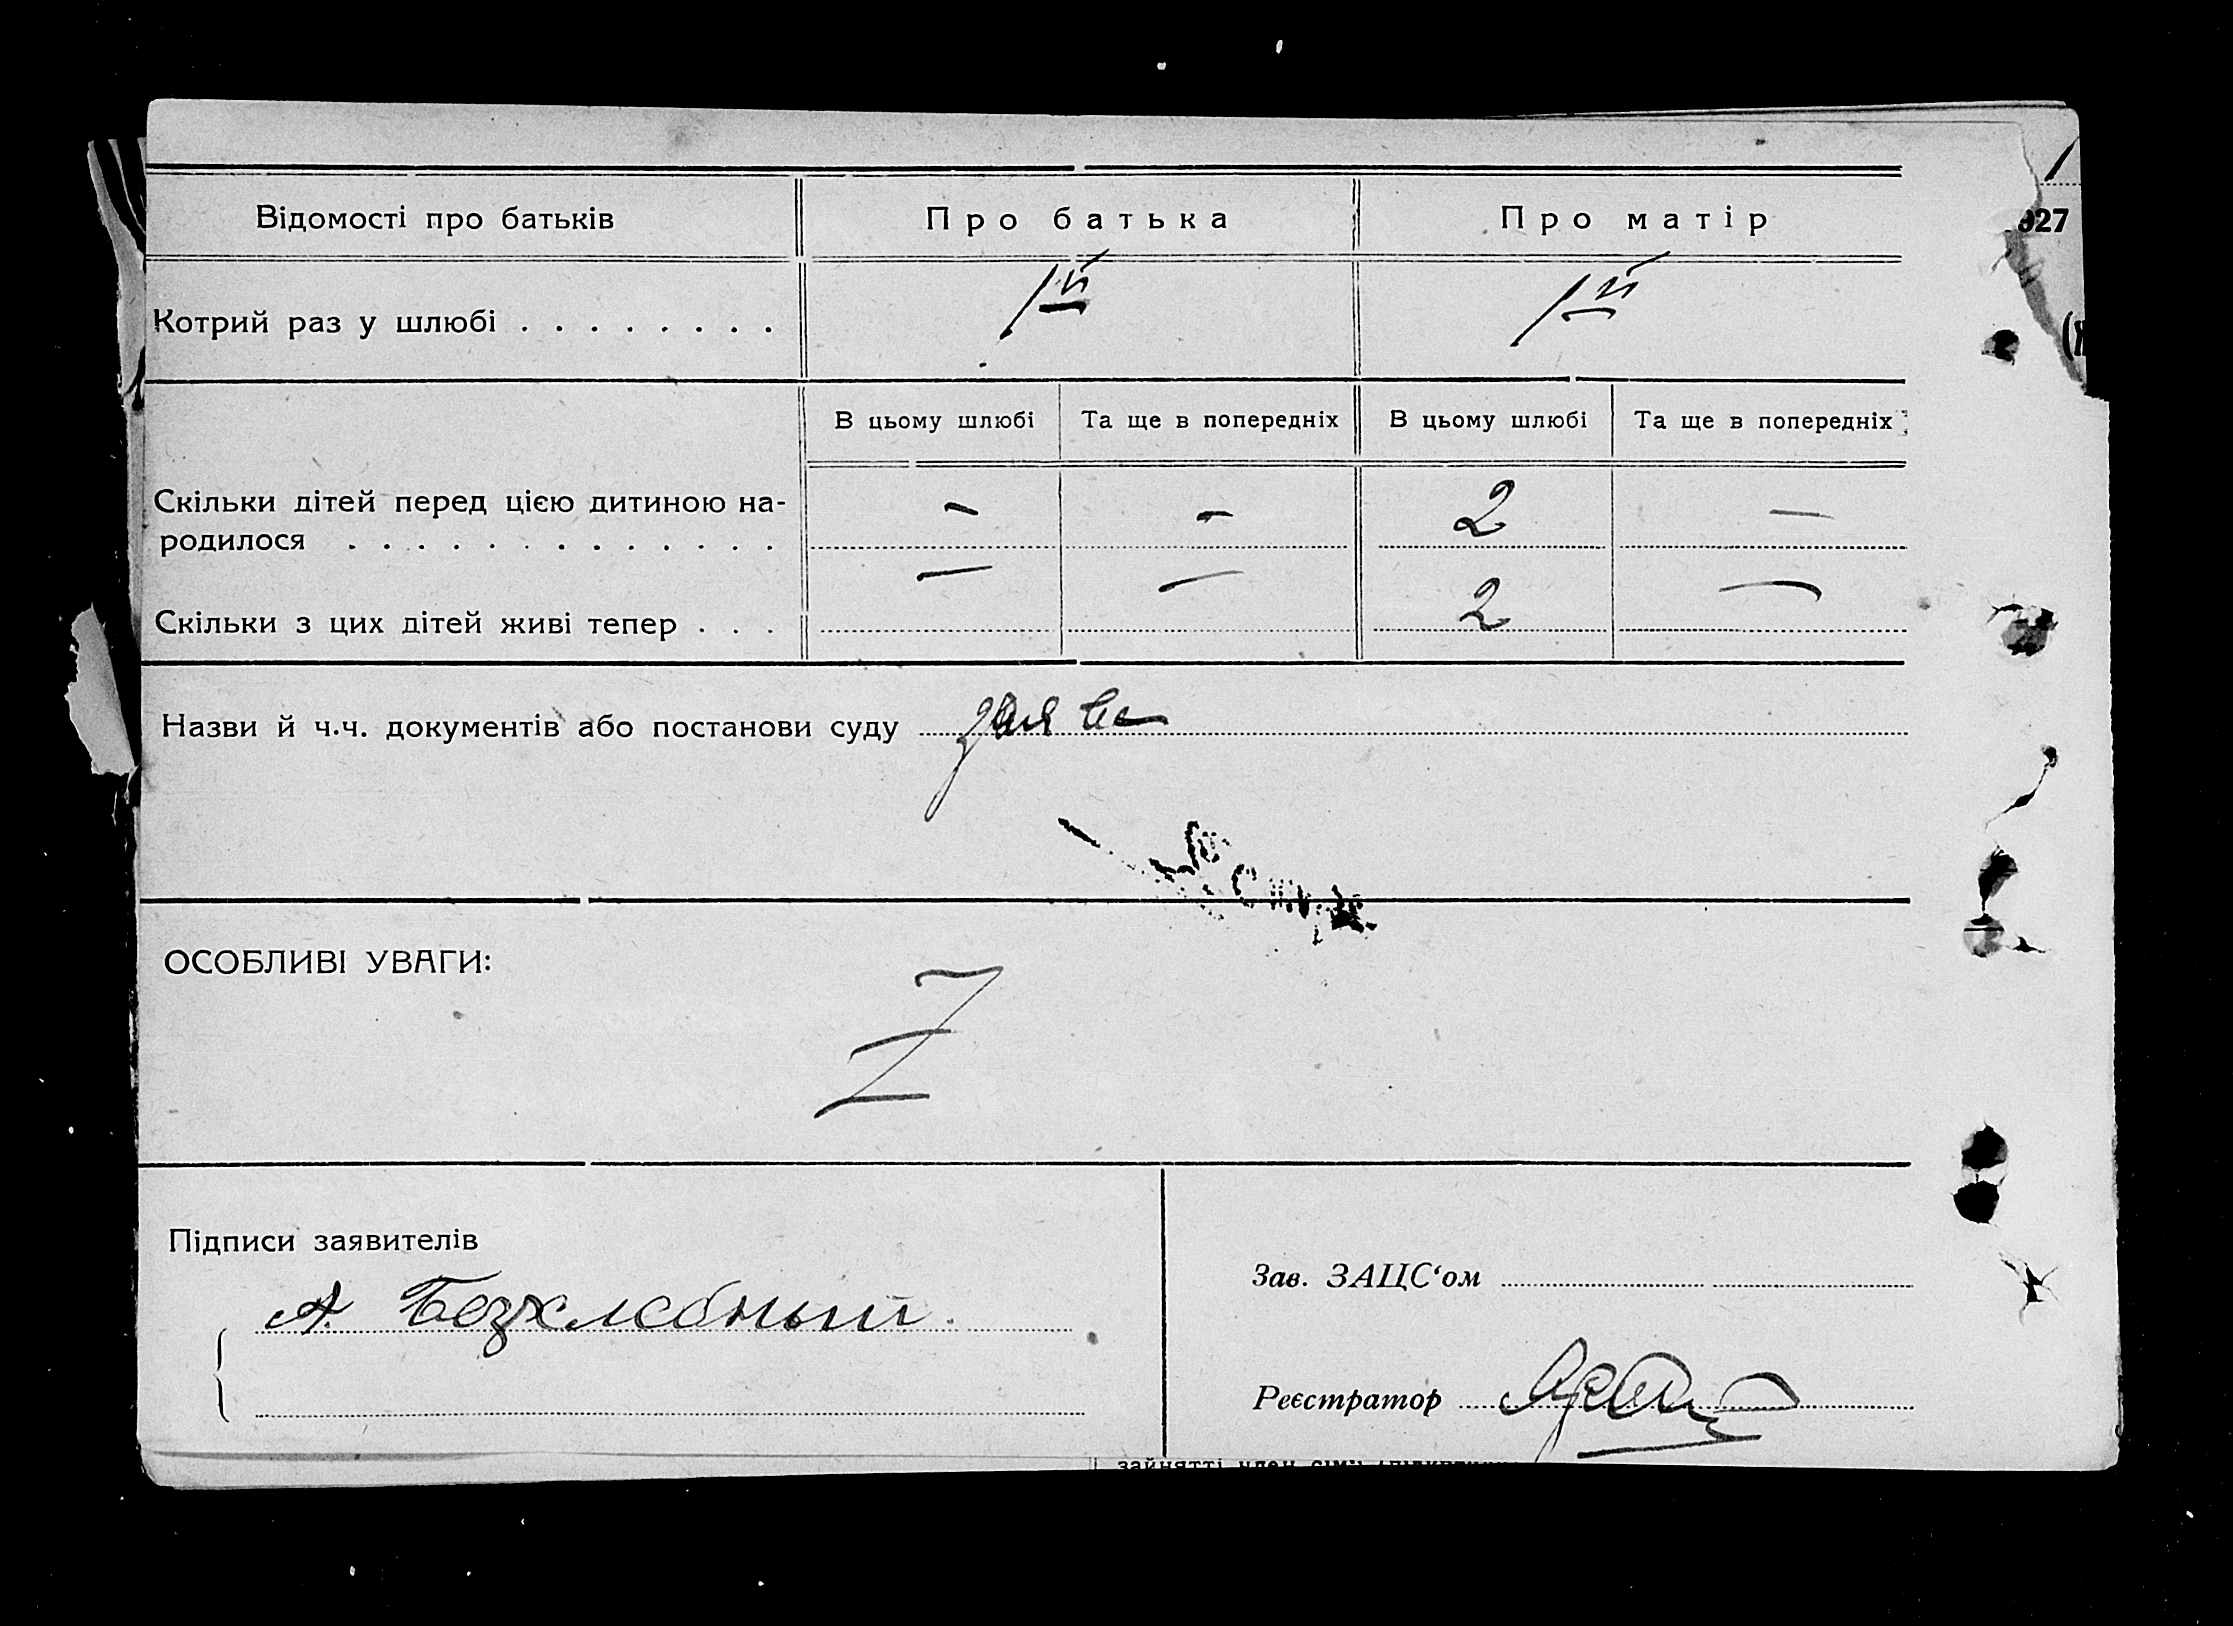 Відомості про батьків Про батька Про матір
927
Котрий раз у шлюбі . . . . . . . . 1й 1й
В цьому шлюбі Та ще в попередніх В цьому шлюбі Та ще в попередніх
Скільки дітей перед цією дитиною на- - - 2 -
родилося . . . . . . . . . . . . .
Скільки з цих дітей живі тепер . . . - - 2 -
Назви й ч.ч. документів або постанови суду заява
ОСОБЛИВІ УВАГИ:
Z
Підписи заявителів
Зав. ЗАЦС‘ом
А. Безхлебный.
Реєстратор
зайнятті член сім'ї